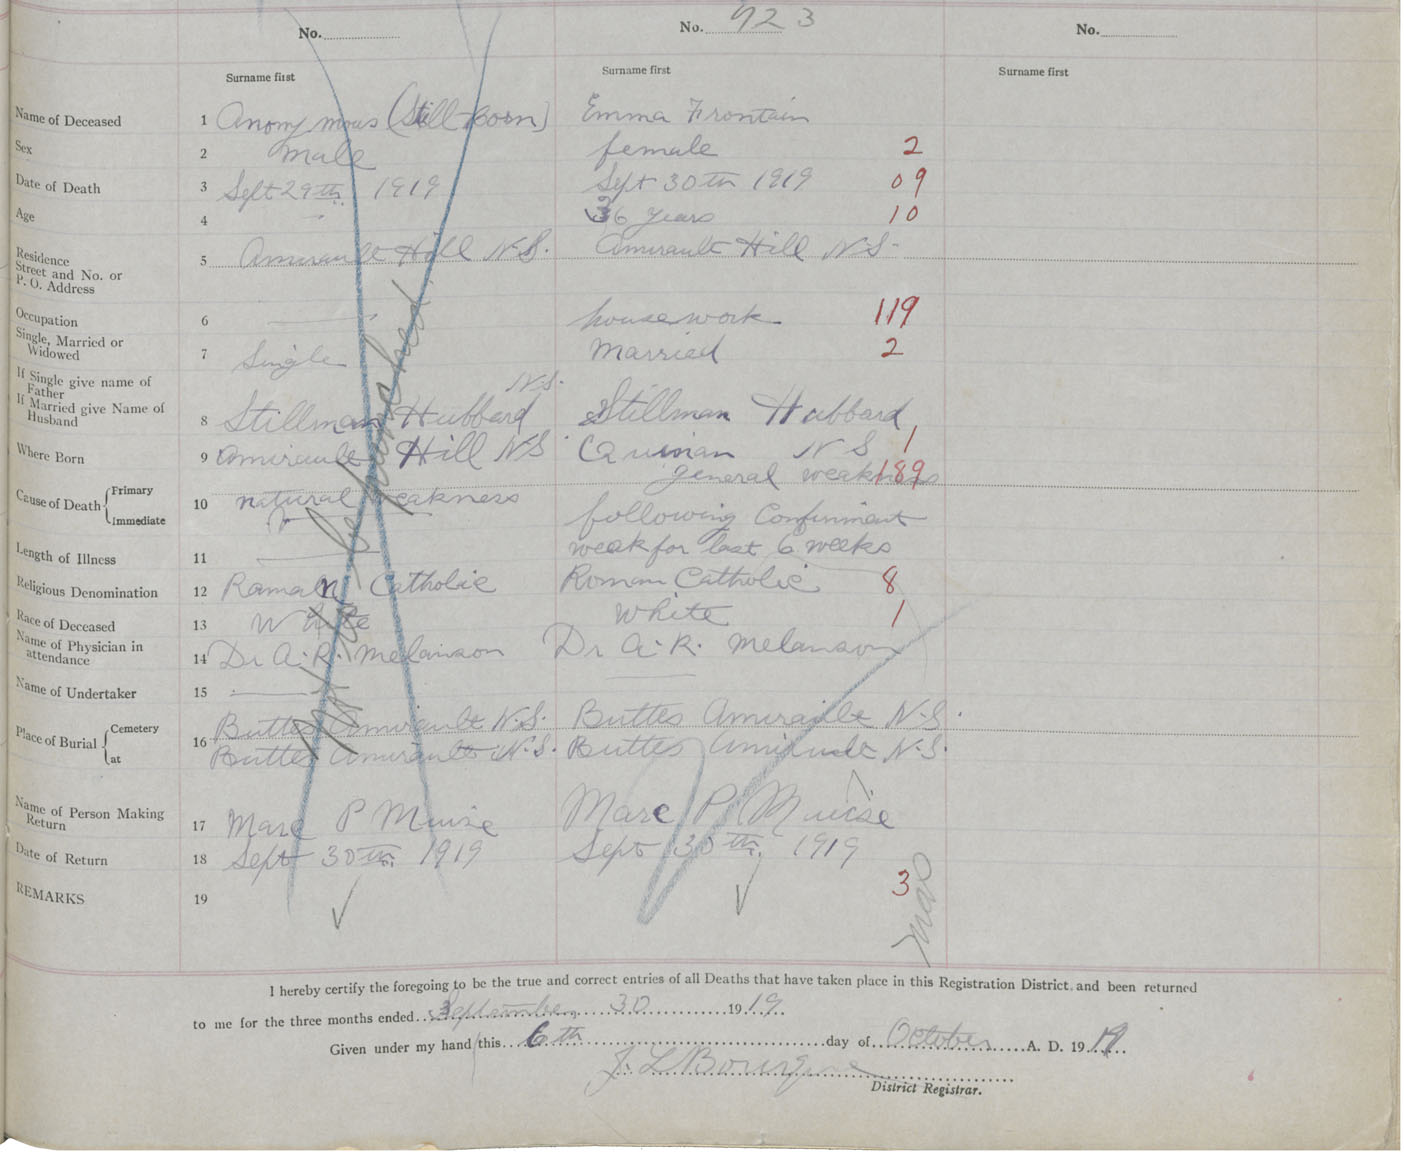 No. No. 923 No.
Surname first Surname first Surname first
Name of Deceased 1 Anonymous (Still-born) Emma Frontain
Sex 2 male female 2
Date of Death 3 Sept 29th. 1919 Sept 30th 1919 09
Age 4 36 years 10
Residence
Street and No. or
P. O. Address 5 Amirault Hill N.S. Amirault Hill N.S.
Occupation 6 housework 119
Single, Married or
Widowed 7 Single Married 2
If Single give name of
Father
If Married give Name of
Husband 8 Stillman Hubbard N.S. Stillman Hubbard
Where Born 9 Amirault Hill N.S. N S 1
general weakness 189
Cause of Death Primary
Immediate 10 natural weakness following Confinment
Length of Illness 11 weak for last 6 weeks
Religious Denomination 12 Roman Catholic Roman Catholic 8
Race of Deceased 13 White White 1
Name of Physician in
attendance 14 Dr A. R. Melanson Dr A. R. Melanson
Name of Undertaker 15
Place of Burial Cemetery 16 Buttes Amirault N.S. Buttes Amirault N.S.
at Buttes Amirault N.S. Buttes Amirault N.S.
Name of Person Making
Return 17 Marc P Muise Marc P Muise
Date of Return 18 Sept 30th. 1919 Sept 30th. 1919
REMARKS 19 3
Not to be punched.
I hereby certify the foregoing to be the true and correct entries of all Deaths that have taken place in this Registration District, and been returned
to me for the three months ended September 30 1919
Given under my hand this 6th day of October A. D. 1919
J. L. Bourque
District Registrar.